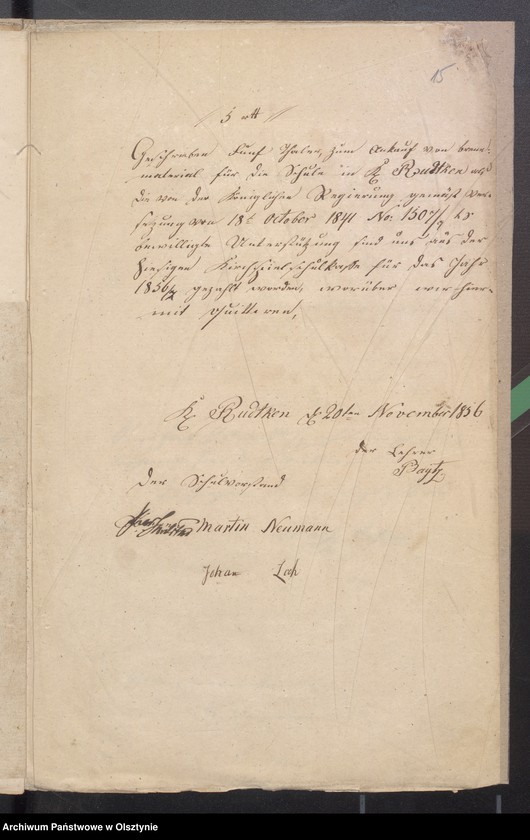 15
5 rtl
Geschrieben Fünf Thaler, zum Ankauf von brenn-
material für die Schule in Kl Rudtken als
die von der Königlichen Regierung gemäß Ver-
fügung von 18t October 1841 No: 150
bewilligte Unterstützung sind uns aus der
hiesigen Kirchspielschulkasse für das Jahr
1856/ gezahlt worden, worüber wir hier-
mit quittiren,
Kl Rudtken d 20ten November 1856
der Lehrer
Der Schulvorstand
Martin Neumann
Johan
Archiwum Państwowe w Olsztynie